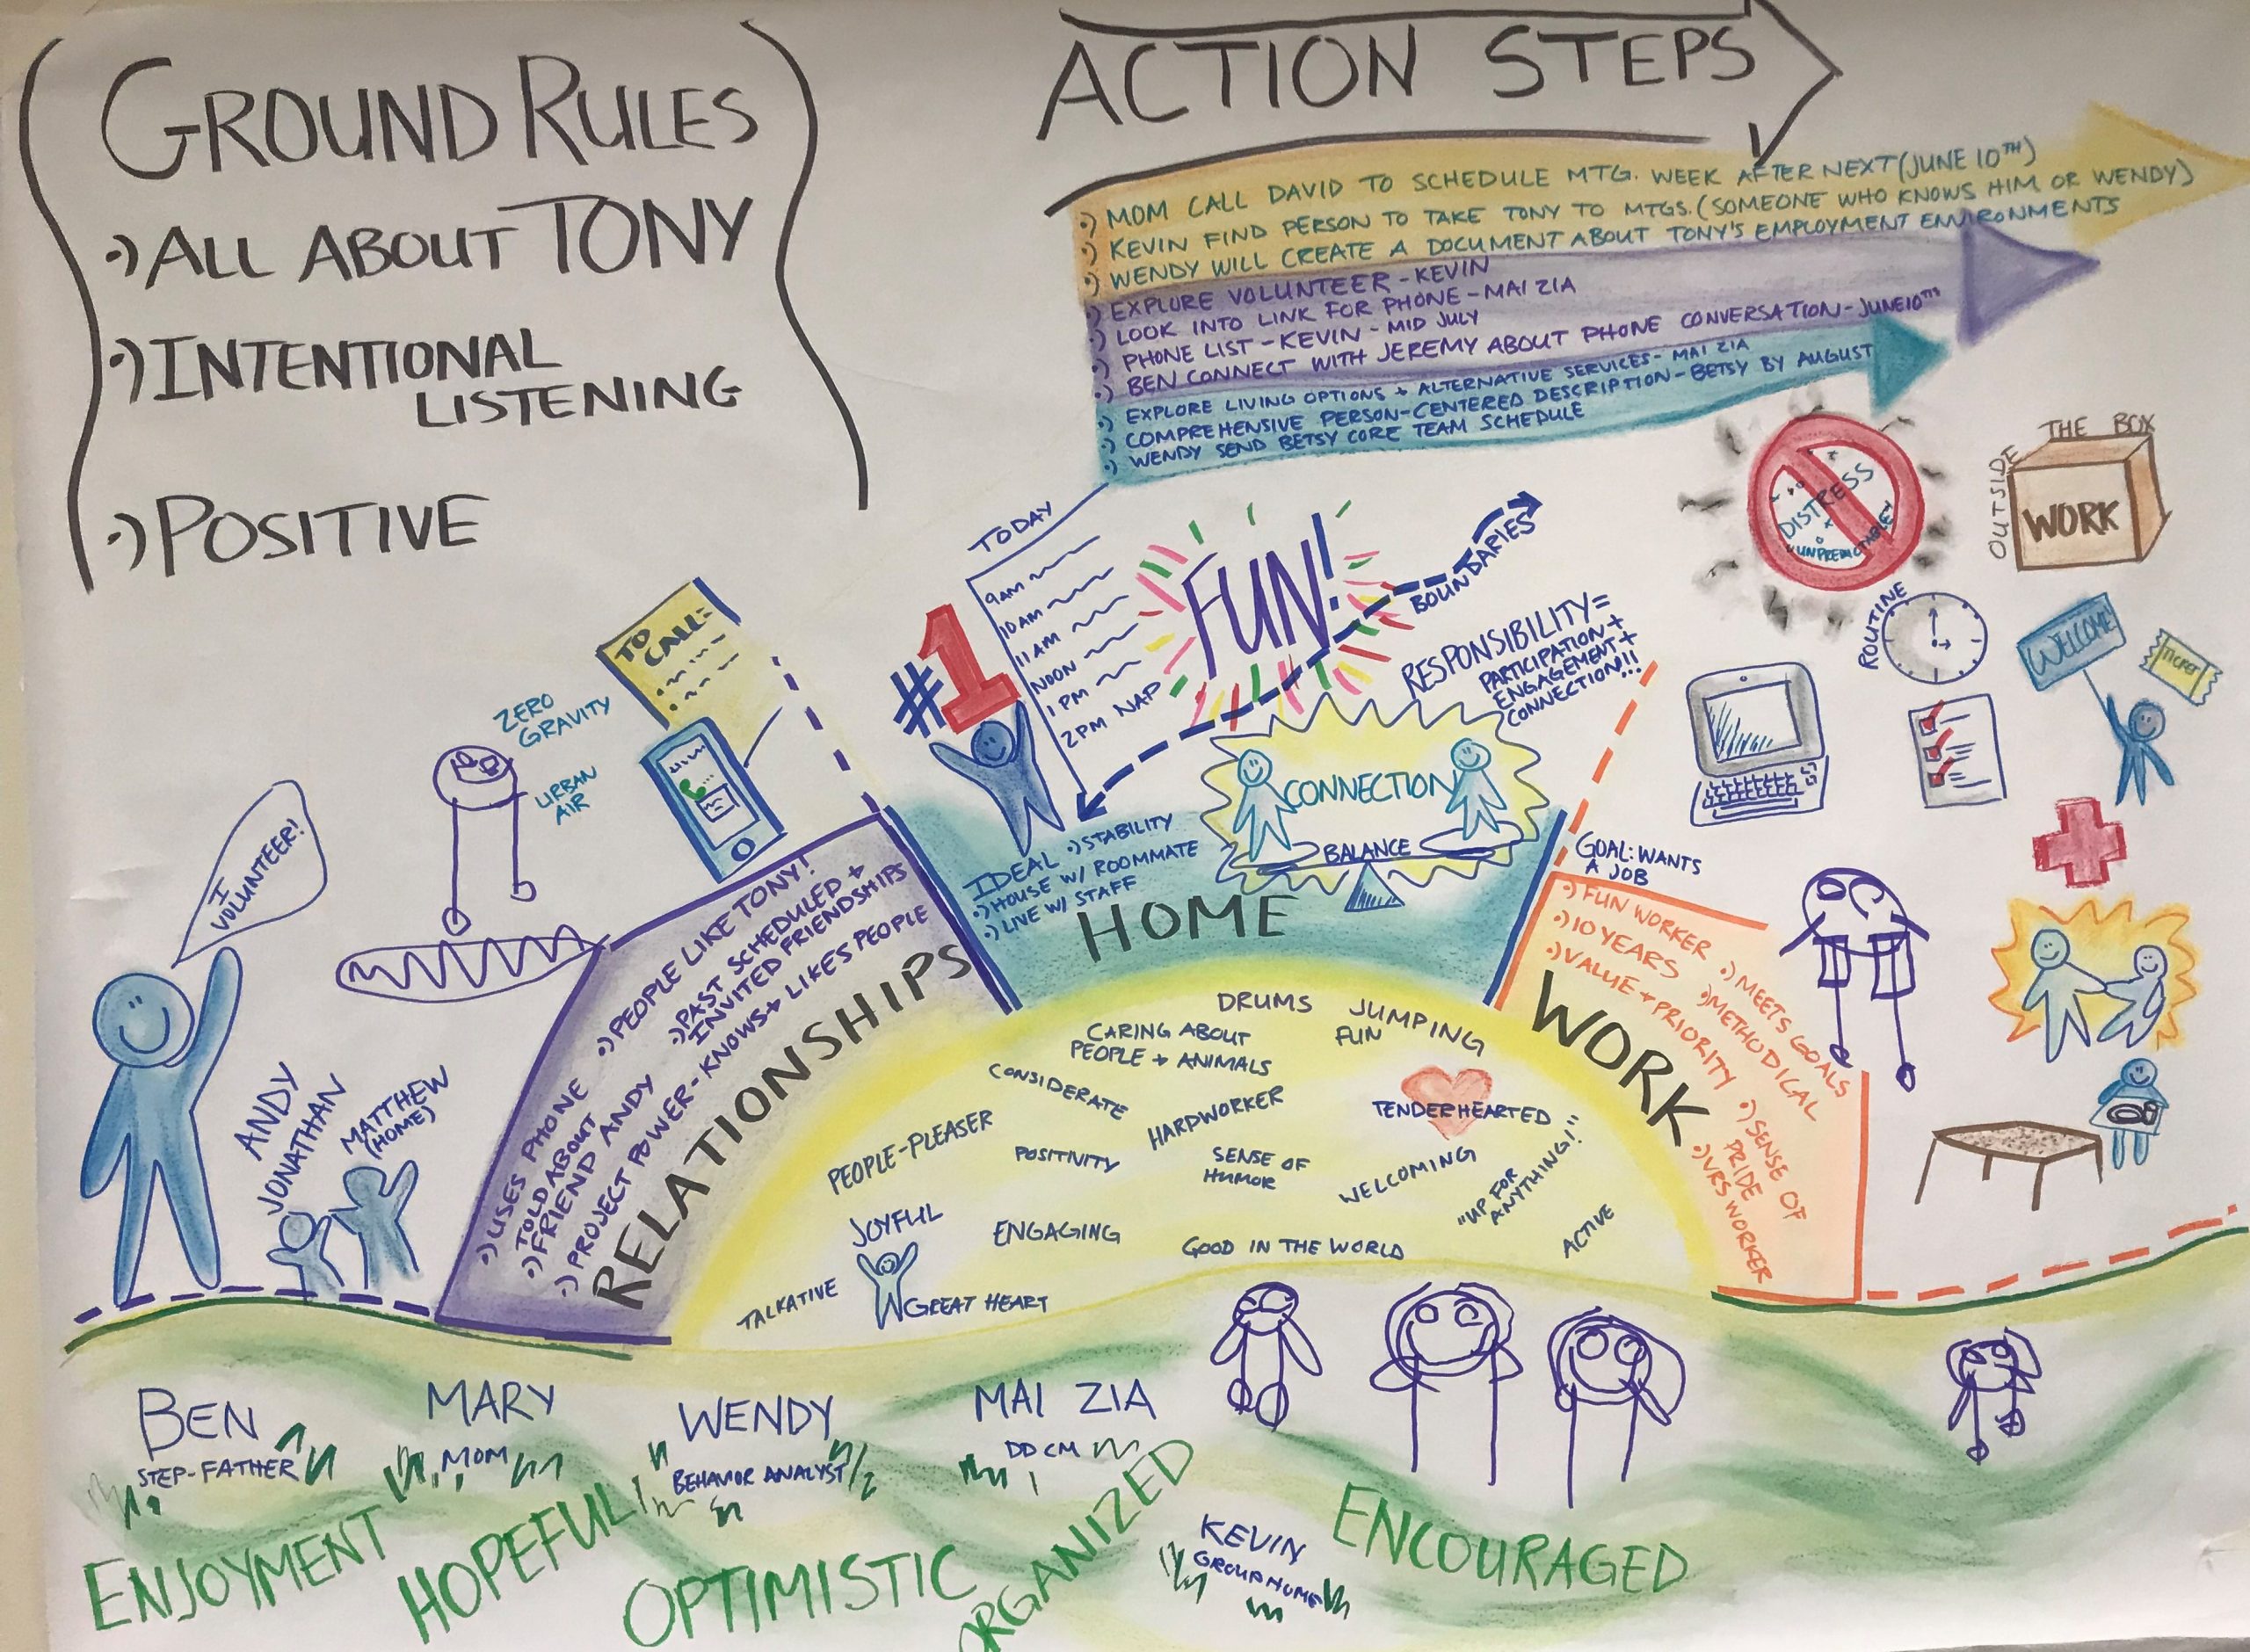 GROUND RULES
•) ALL ABOUT TONY
•) INTENTIONAL
LISTENING
•) POSITIVE
ACTION STEPS
•) MOM CALL DAVID TO SCHEDULE MTG. WEEK AFTER NEXT (JUNE 10TH)
•) KEVIN FIND PERSON TO TAKE TONY TO MTGS. (SOMEONE WHO KNOWS HIM OR WENDY)
•) WENDY WILL CREATE A DOCUMENT ABOUT TONY'S EMPLOYMENT ENVIRONMENTS
•) EXPLORE VOLUNTEER - KEVIN
•) LOOK INTO LINK FOR PHONE - MAI ZIA
•) PHONE LIST - KEVIN - MID JULY
•) BEN CONNECT WITH JEREMY ABOUT PHONE CONVERSATION - JUNE 10TH
•) EXPLORE LIVING OPTIONS + ALTERNATIVE SERVICES - MAI ZIA
•) COMPREHENSIVE PERSON-CENTERED DESCRIPTION - BETSY BY AUGUST
•) WENDY SEND BETSY CORE TEAM SCHEDULE
I
VOLUNTEER!
ANDY
JONATHAN
MATTHEW
(HOME)
ZERO
GRAVITY
URBAN
AIR
TO
CALL:
•) PEOPLE LIKE TONY!
•) PAST SCHEDULED +
INVITED FRIENDSHIPS
•) USES PHONE
TOLD ABOUT
•) FRIEND ANDY
•) PROJECT POWER - KNOWS + LIKES PEOPLE
RELATIONSHIPS
#1
TODAY
9AM
10AM
11AM
NOON
1PM
2PM NAP
FUN!
BOUNDARIES
RESPONSIBILITY =
PARTICIPATION +
ENGAGEMENT +
CONNECTION!!!
CONNECTION
BALANCE
IDEAL •) STABILITY
•) HOUSE W/ ROOMMATE
•) LIVE W/ STAFF
HOME
DISTRESS
+
"UNPREDICTABLE"
OUTSIDE
THE BOX
WORK
ROUTINE
WELCOME!
TICKET
GOAL: WANTS
A JOB
•) FUN WORKER
•) 10 YEARS
•) VALUE + PRIORITY
•) MEETS GOALS
•) METHODICAL
•) SENSE OF
PRIDE
•) VRS WORKER
WORK
DRUMS
JUMPING
FUN
CARING ABOUT
PEOPLE + ANIMALS
CONSIDERATE
HARDWORKER
TENDERHEARTED
PEOPLE-PLEASER
POSITIVITY
SENSE OF
HUMOR
WELCOMING
"UP FOR
ANYTHING!"
JOYFUL
ENGAGING
GOOD IN THE WORLD
ACTIVE
TALKATIVE
GREAT HEART
BEN
STEP-FATHER
MARY
MOM
WENDY
BEHAVIOR ANALYST
MAI ZIA
DD CM
KEVIN
GROUP HOME
ENJOYMENT
HOPEFUL
OPTIMISTIC
ORGANIZED
ENCOURAGED